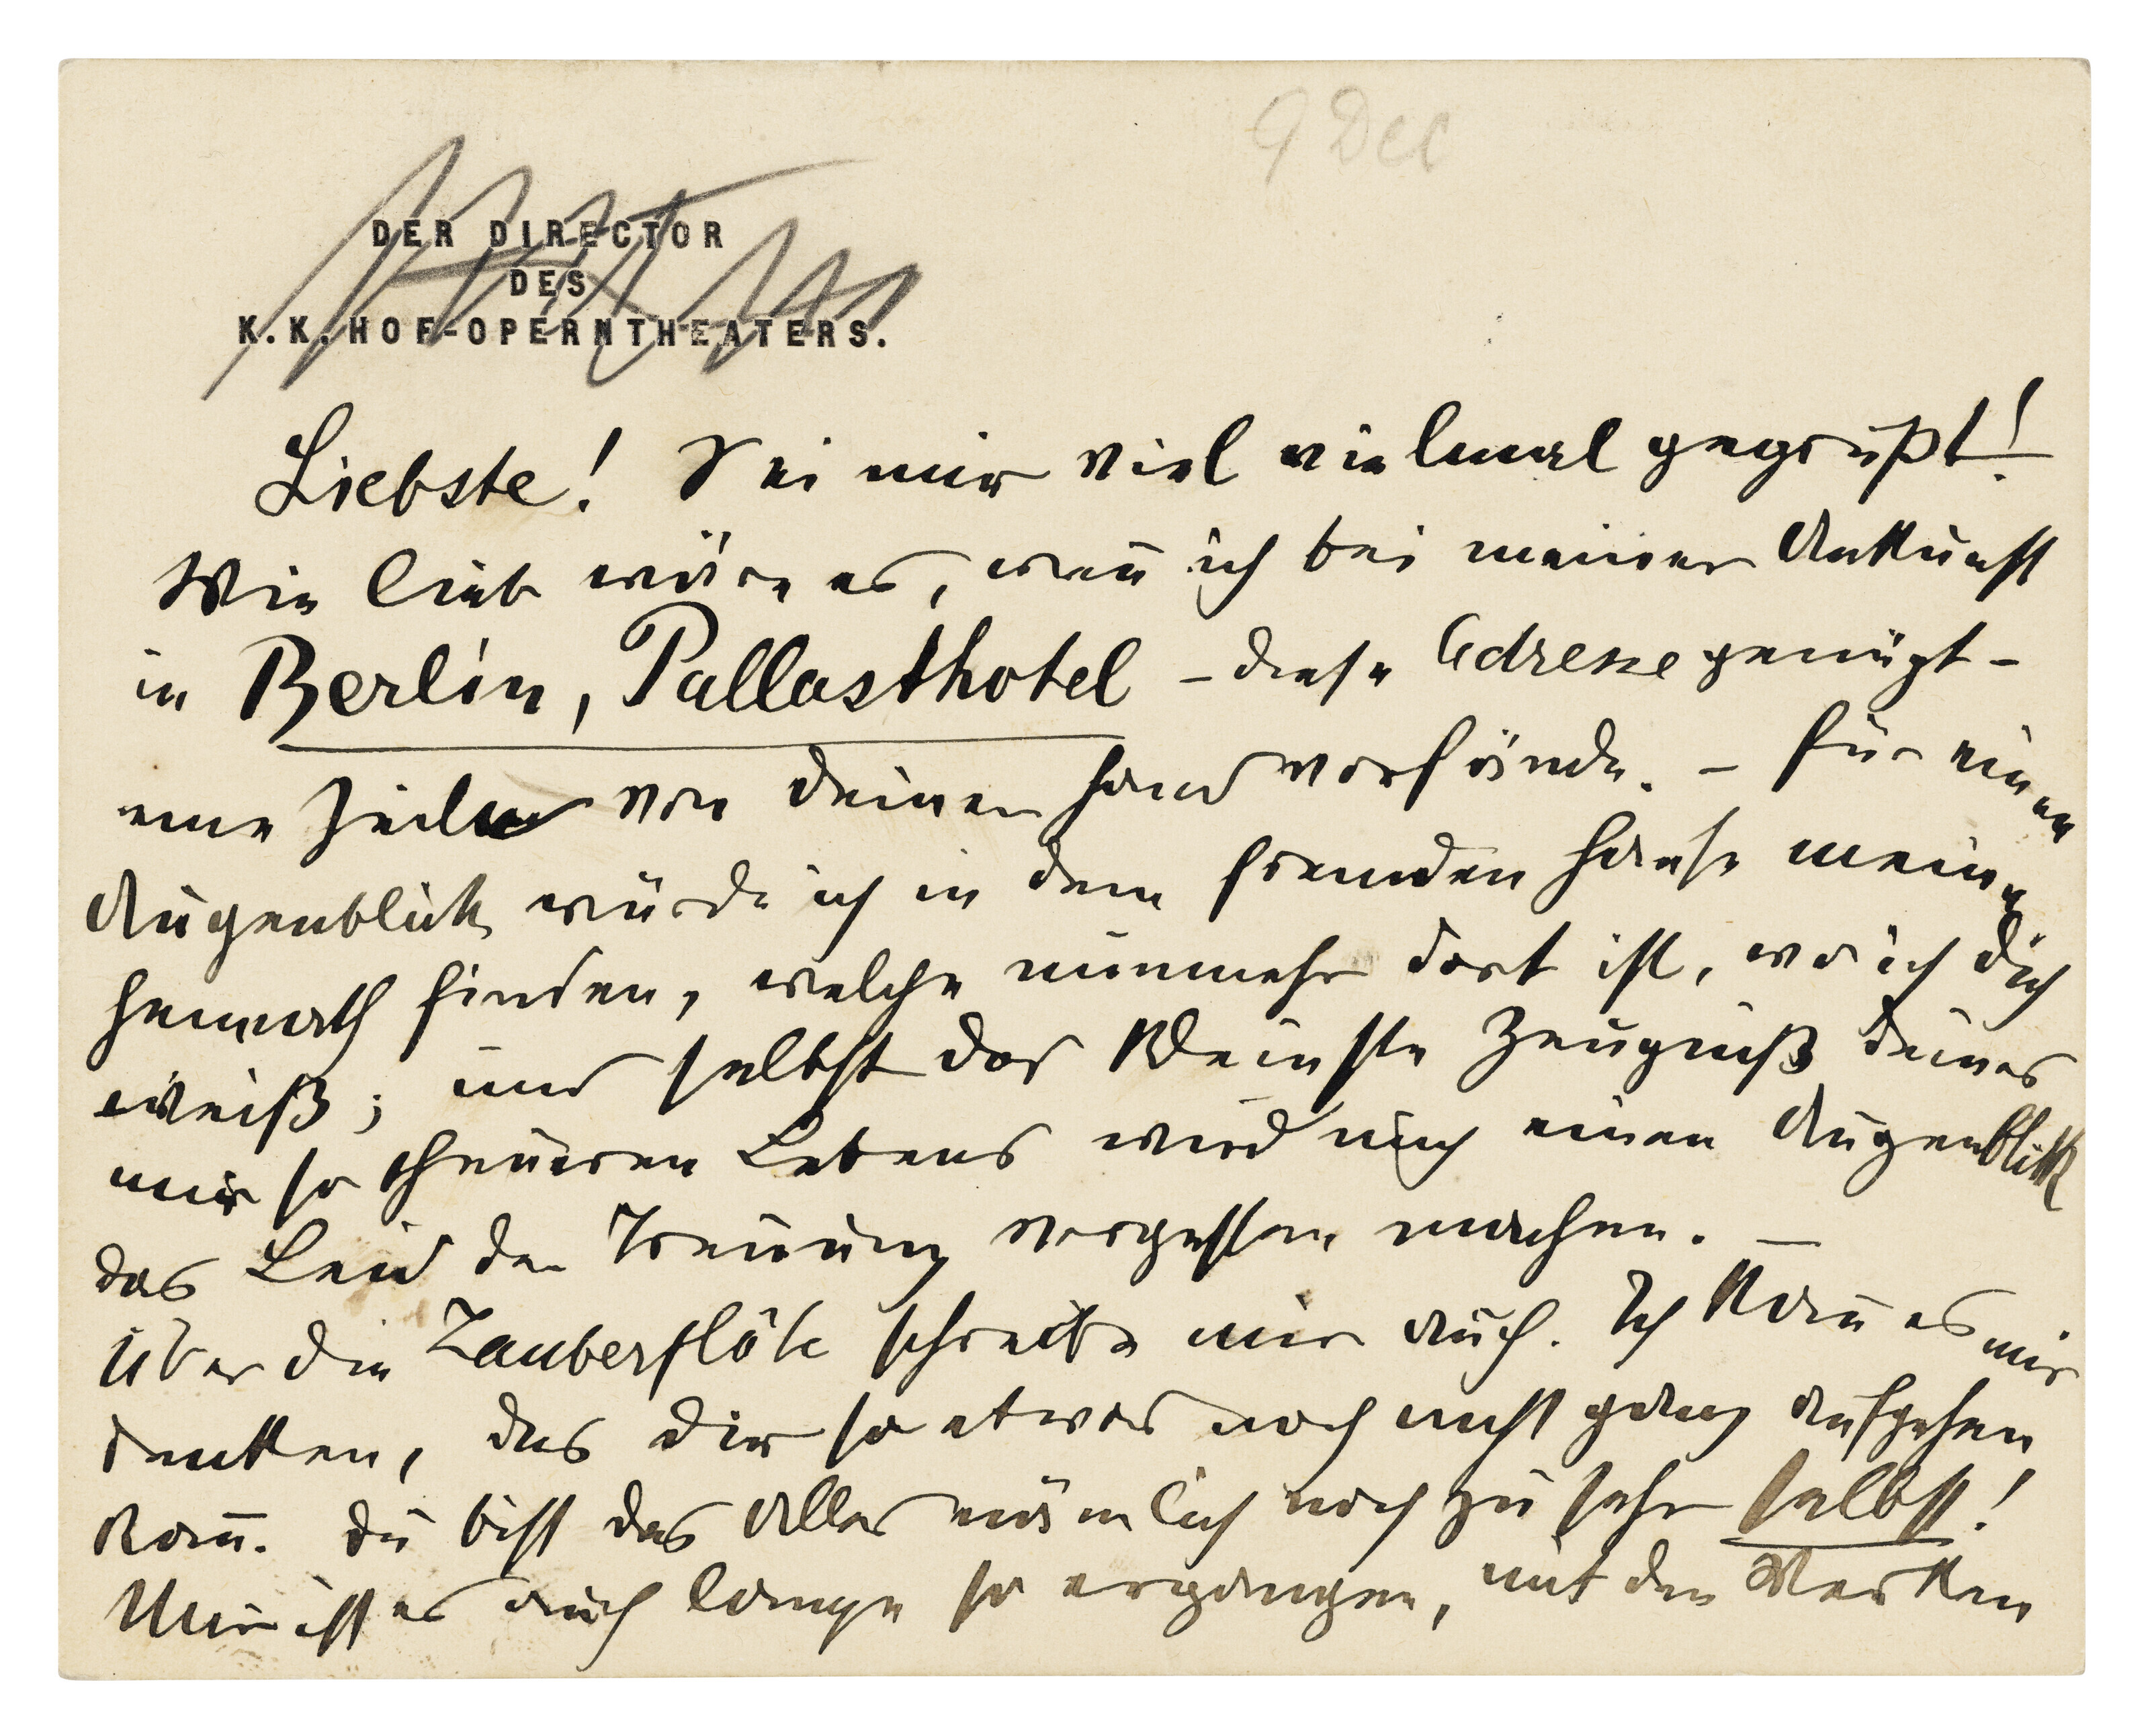 9 Dec
DER DIRECTOR
DES
K. K. HOF-OPERNTHEATERS.
Liebste! Sei mir viel vielmal gegrüßt!
Wie lieb wäre es, wen̄ ich bei meiner Ankunft
in Berlin, Pallasthotel – diese Adresse genügt –
eine Zeile von deiner Hand vorfände. – Für einen
Augenblick würde ich in dem fremden Hause meine
Heimath finden, welche nunmehr dort ist, wo ich dich
weiß; und selbst das kleinste Zeugniß deines
mir so theueren Lebens wird mich einen Augenblick
das Leid der Trennung vergessen machen. –
Über die Zauberflöte schreibe mir auch. Ich kan̄ es mir
denken, das dir so etwas noch nicht ganz aufgehen
kan̄. Du bist das Alles nämlich noch zu sehr selbst!
Mir ist es auch lange so ergangen, mit den Werken